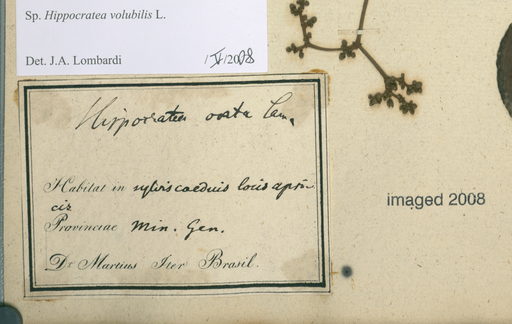 Sp. Hippocratea volubilis L.
Det. J.A. Lombardi /IV/2008
Hippocratea ovata Lam.
Habitat in sylvis caeduis locis apri-
cis
Provinciae Min. Gen.
Dr Martius Iter Brasil.
imaged 2008